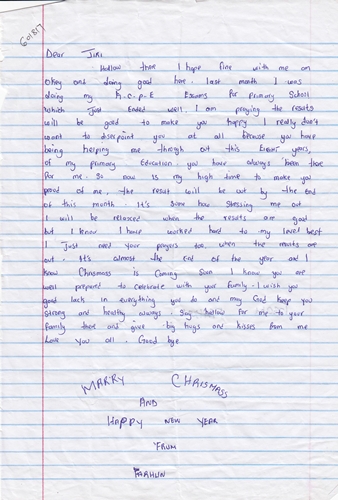 601817
Dear Jiri
Hollow there I hope fine with me am
okey and doing good here. last month I was
doing my K.C.P.E Exams for Primary School
which Just Ended well. I am praying the results
will be good to make you happy I really don't
want to disapoint you at all because you have
being helping me through out this years,
of my primary Education. you have always been there
for me. So now is my high time to make you
proud of me. the result will be out by the end
of this month. It's some how stressing me out
I will be relaxed when the results are good
but I know I have worked hard to my level best
I Just need your prayers too. when the results are
out. It's almost the End of the year and I
know Chrismass is Coming Soon I know you are
well prepared to celebrate with your family. I wish you
good lack in everything you do and may God keep you
strong and healthy always. Say hallow for me to your
family there and give big hugs and kisses from me
Love you all. Good bye
MARRY CHRISMASS
AND
HAPPY NEW YEAR
FRUM
FARHUN